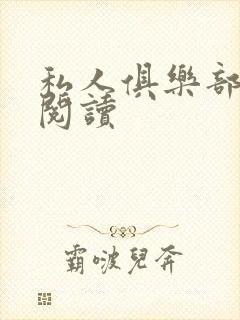 私人俱樂部
閱讀
霸啵兒奔